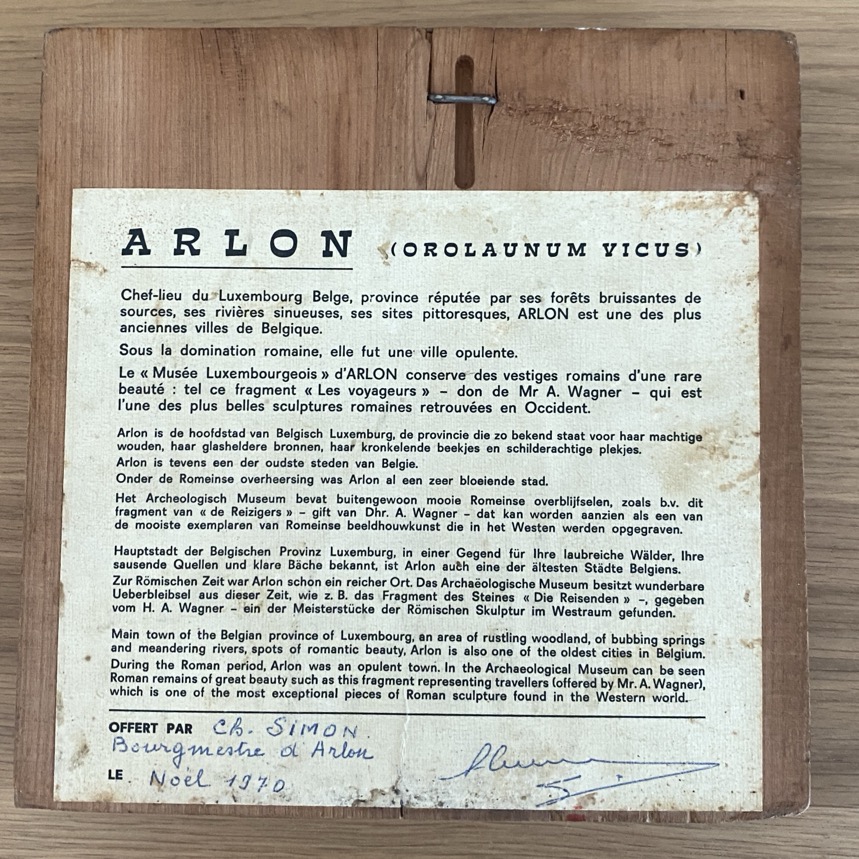 ARLON (OROLAUNUM VICUS)
Chef-lieu du Luxembourg Belge, province réputée par ses forêts bruissantes de
sources, ses rivières sinueuses, ses sites pittoresques, ARLON est une des plus
anciennes villes de Belgique.
Sous la domination romaine, elle fut une ville opulente.
Le « Musée Luxembourgeois » d'ARLON conserve des vestiges romains d'une rare
beauté : tel ce fragment « Les voyageurs » – don de Mr A. Wagner – qui est
l'une des plus belles sculptures romaines retrouvées en Occident.
Arlon is de hoofdstad van Belgisch Luxemburg, de provincie die zo bekend staat voor haar machtige
wouden, haar glasheldere bronnen, haar kronkelende beekjes en schilderachtige plekjes.
Arlon is tevens een der oudste steden van Belgie.
Onder de Romeinse overheersing was Arlon al een zeer bloeiende stad.
Het Archeologisch Museum bevat buitengewoon mooie Romeinse overblijfselen, zoals b.v. dit
fragment van « de Reizigers » – gift van Dhr. A. Wagner – dat kan worden aanzien als een van
de mooiste exemplaren van Romeinse beeldhouwkunst die in het Westen werden opgegraven.
Hauptstadt der Belgischen Provinz Luxemburg, in einer Gegend für Ihre laubreiche Wälder, Ihre
sausende Quellen und klare Bäche bekannt, ist Arlon auch eine der ältesten Städte Belgiens.
Zur Römischen Zeit war Arlon schon ein reicher Ort. Das Archaëologische Museum besitzt wunderbare
Ueberbleibsel aus dieser Zeit, wie z. B. das Fragment des Steines « Die Reisenden » –, gegeben
vom H. A. Wagner – ein der Meisterstücke der Römischen Skulptur im Westraum gefunden.
Main town of the Belgian province of Luxembourg, an area of rustling woodland, of bubbing springs
and meandering rivers, spots of romantic beauty, Arlon is also one of the oldest cities in Belgium.
During the Roman period, Arlon was an opulent town. In the Archaeological Museum can be seen
Roman remains of great beauty such as this fragment representing travellers (offered by Mr. A. Wagner),
which is one of the most exceptional pieces of Roman sculpture found in the Western world.
OFFERT PAR Ch. SIMON.
Bourgmestre d'Arlon
LE Noël 1970